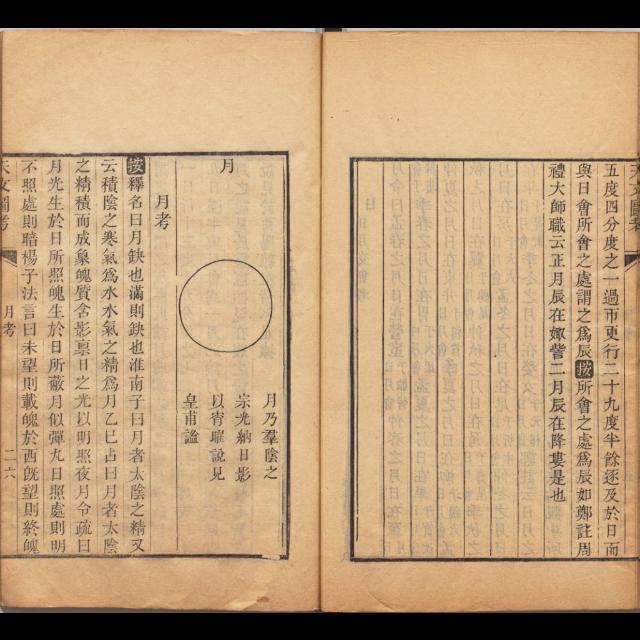 五度四分度之一過市更行二十九度半餘逐及於日而
與日會所會之處謂之爲辰按所會之處爲辰如鄭註周
禮大師職云正月辰在娵訾二月辰在降婁是也
月
月乃羣陰之
宗光納日影
以宵曜說見
皇甫謐
月考
按釋名曰月缺也滿則缺也淮南子曰月者太陰之精又
云積陰之寒氣爲水水氣之精爲月乙巳占曰月者太陰
之精積而成象魄質含影稟日之光以明照夜月令疏曰
月光生於日所照魄生於日所蔽月似彈丸日照處則明
不照處則暗楊子法言曰未望則載魄於西旣望則終魄
天文圖考
月考
二六